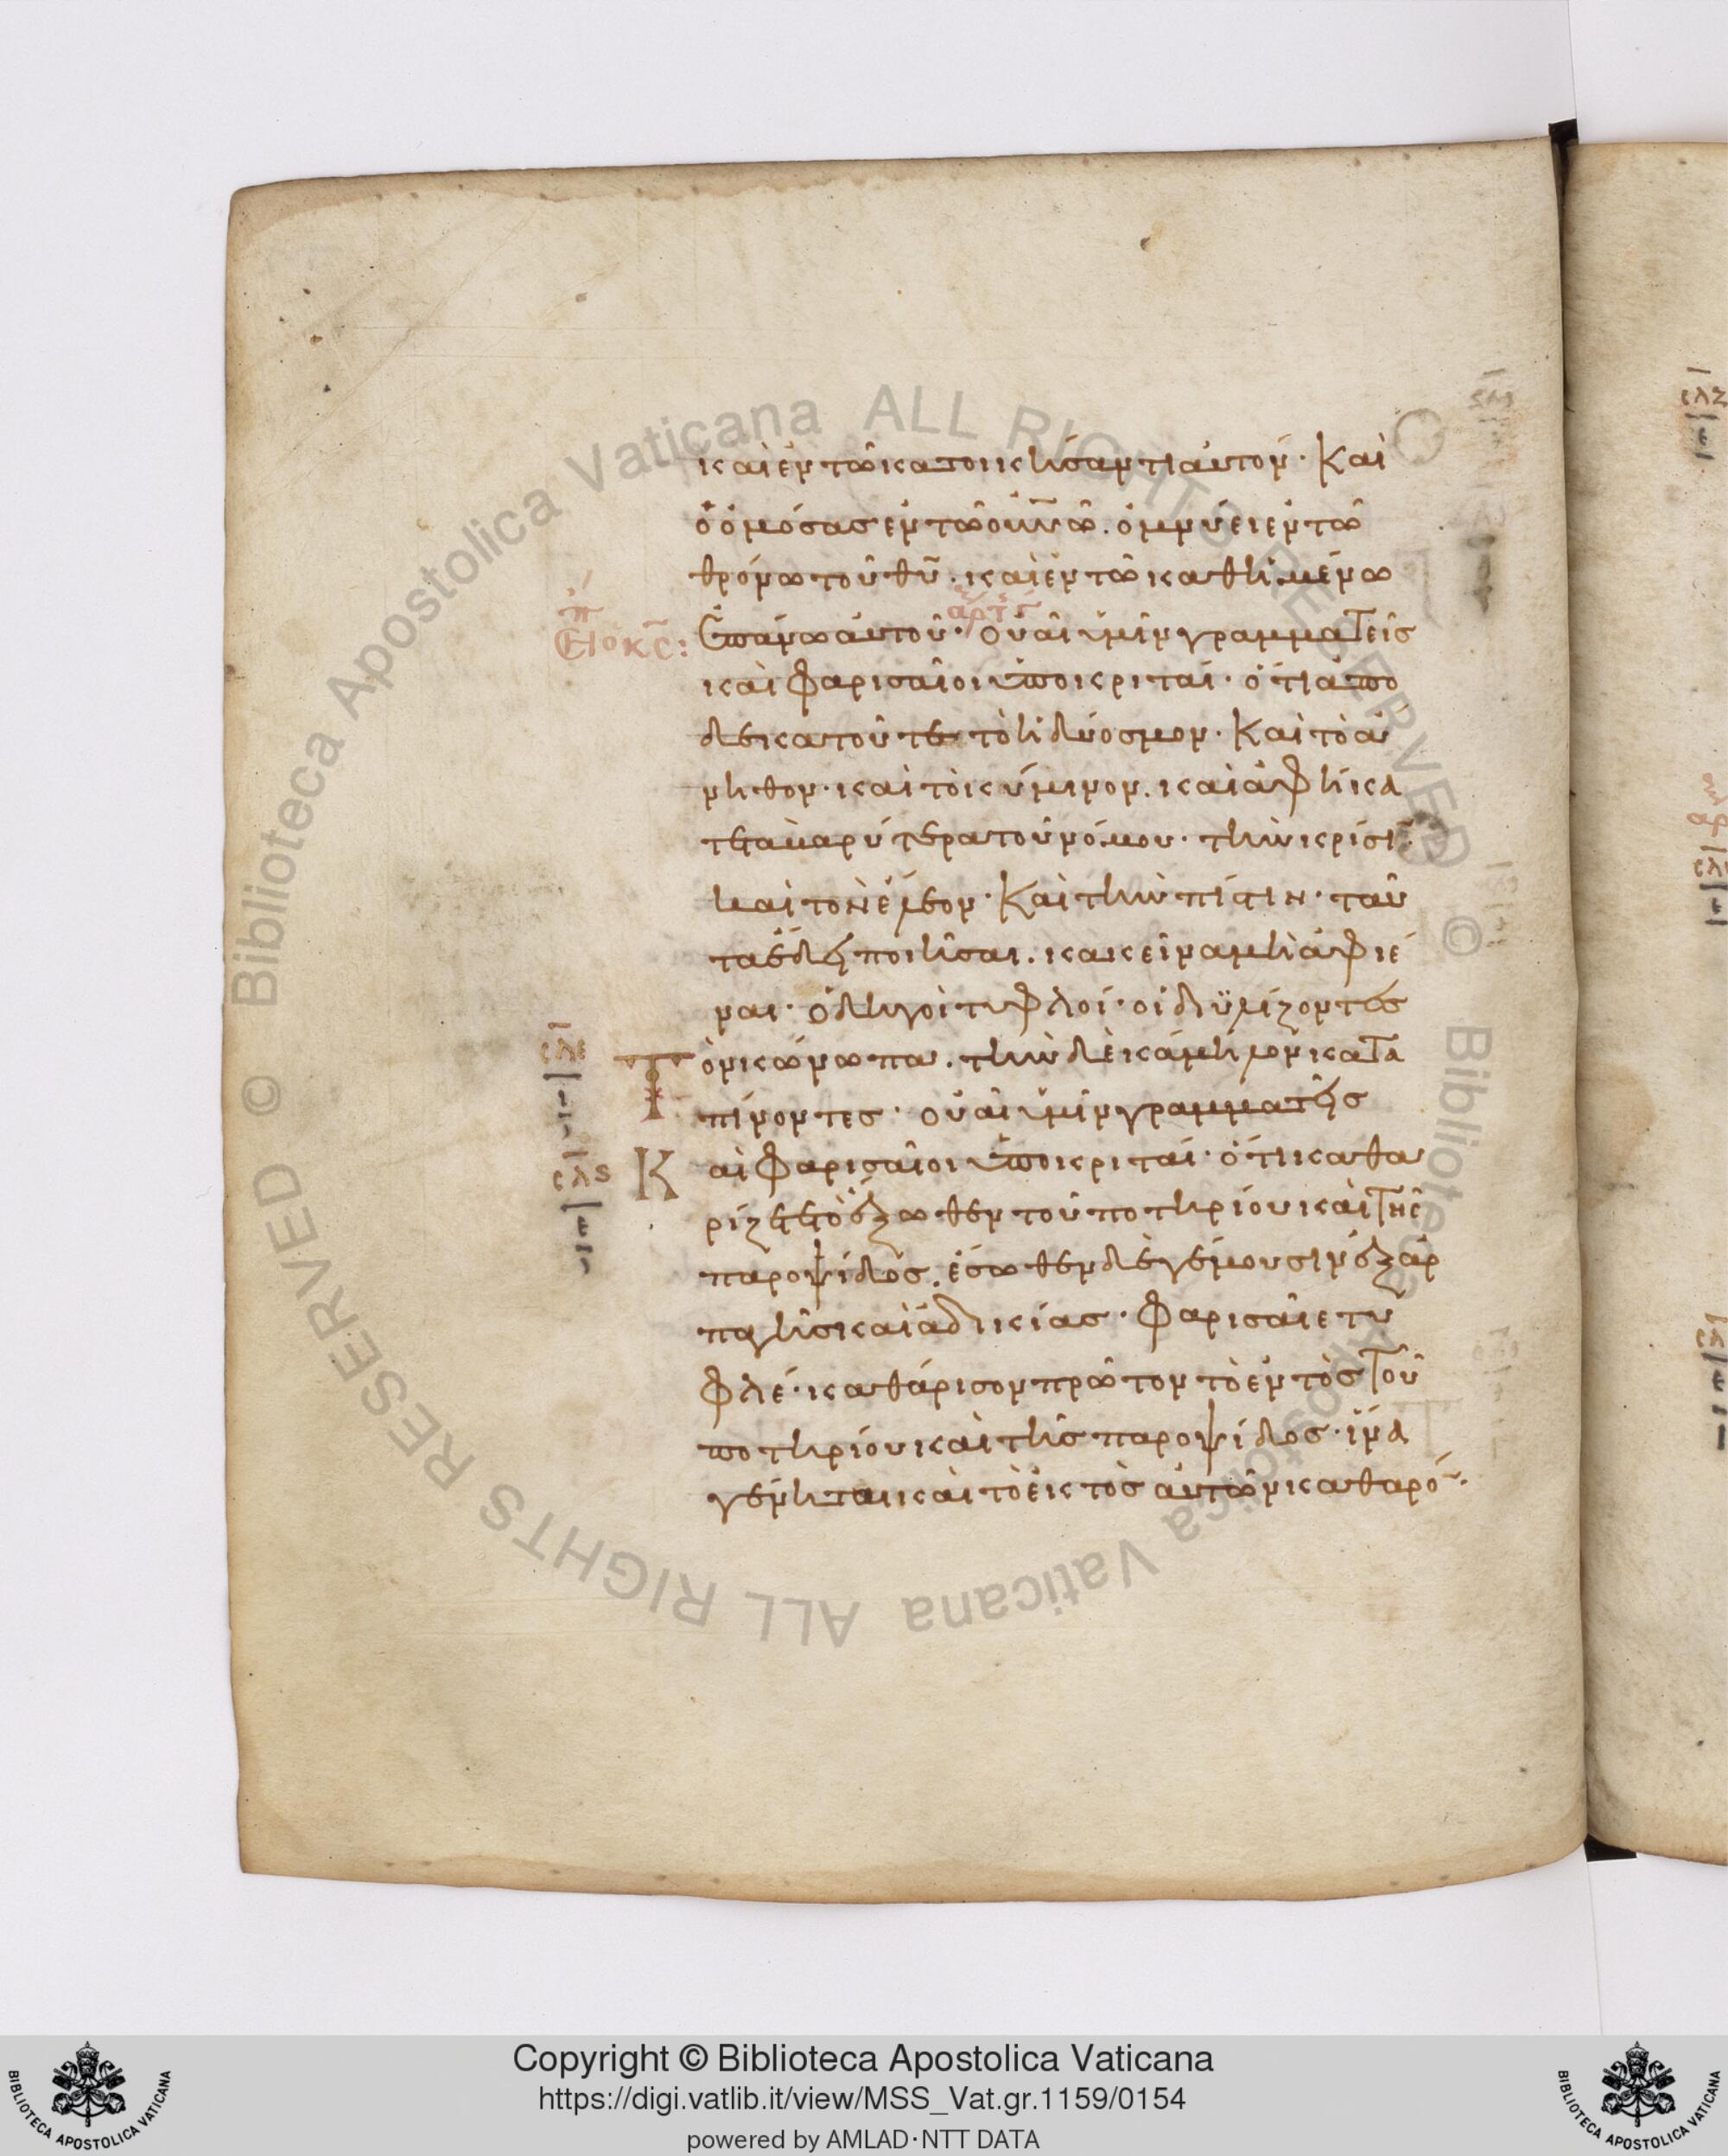 καὶ ἐν τῶ κατοικήσαντι αὐτόν· Καὶ
ὁ ὀμόσας ἐν τῶ οὐνῶ. ὀμνύει ἐν τῶ
θρόνω τοῦ θυ· καὶ ἐν τῶ καθημένω
ἐπάνω αὐτοῦ· οὐαὶ ὑμῖν γραμματεῖς
καὶ Φαρισαῖοι ὑποκριταί· ὅτι ἀπο
δεκατοῦτε τὸ ἡδύοσμον· Καὶ τὸ ἄ
νηθον· καὶ τὸ κύμινον. καὶ ἀφήκα
τε τὰ βαρύτερα τοῦ νόμου· τὴν κρίσιν·
καὶ τὸν ἔλεον· Καὶ τὴν πίστιν· ταῦ
τα ἔδει ποιῆσαι. κακεῖνα μὴ ἀφιέ
ναι· ὁδηγοὶ τυφλοί· οἱ διϋλίζοντες
Τ ὸν κώνωπα. τὴν δὲ κάμηλον κατα
πίνοντες· οὐαὶ ὑμῖν γραμματεῖς
Κ αὶ Φαρισαῖοι ὑποκριταί· ὅτι καθα
ρίζετε τὸ ἔξωθεν τοῦ ποτηρίου καὶ τῆς
παροψίδος. ἔσωθεν δὲ γέμουσιν ἐξ ἁρ
παγῆς καὶ ἀδικίας· Φαρισαῖε τυ
φλέ· καθάρισον πρῶτον τὸ ἐντὸς τοῦ
ποτηρίου καὶ τῆς παροψίδος· ἵνα
γένηται καὶ τὸ ἐκτὸς αὐτῶν καθαρόν·
σλε
σλς
Copyright © Biblioteca Apostolica Vaticana
https://digi.vatlib.it/view/MSS_Vat.gr.1159/0154
powered by AMLAD·NTT DATA
BIBLIOTECA APOSTOLICA VATICANA
BIBLIOTECA APOSTOLICA VATICANA
© Biblioteca Apostolica Vaticana ALL RIGHTS RESERVED
© Biblioteca Apostolica Vaticana ALL RIGHTS RESERVED